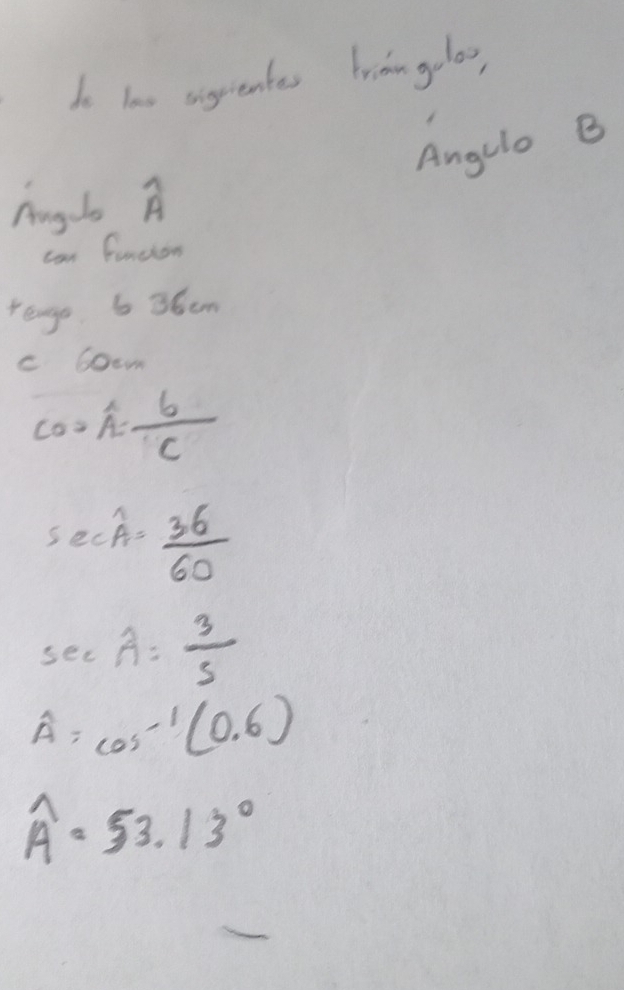 de los siguientes triángulos,
Ángulo B
Ángulo Â
con función
tengo b 36cm
c 60cm
cos Â = b/c
sec Â = 36/60
sec Â = 3/5
Â = cos⁻¹(0.6)
Â = 53.13°